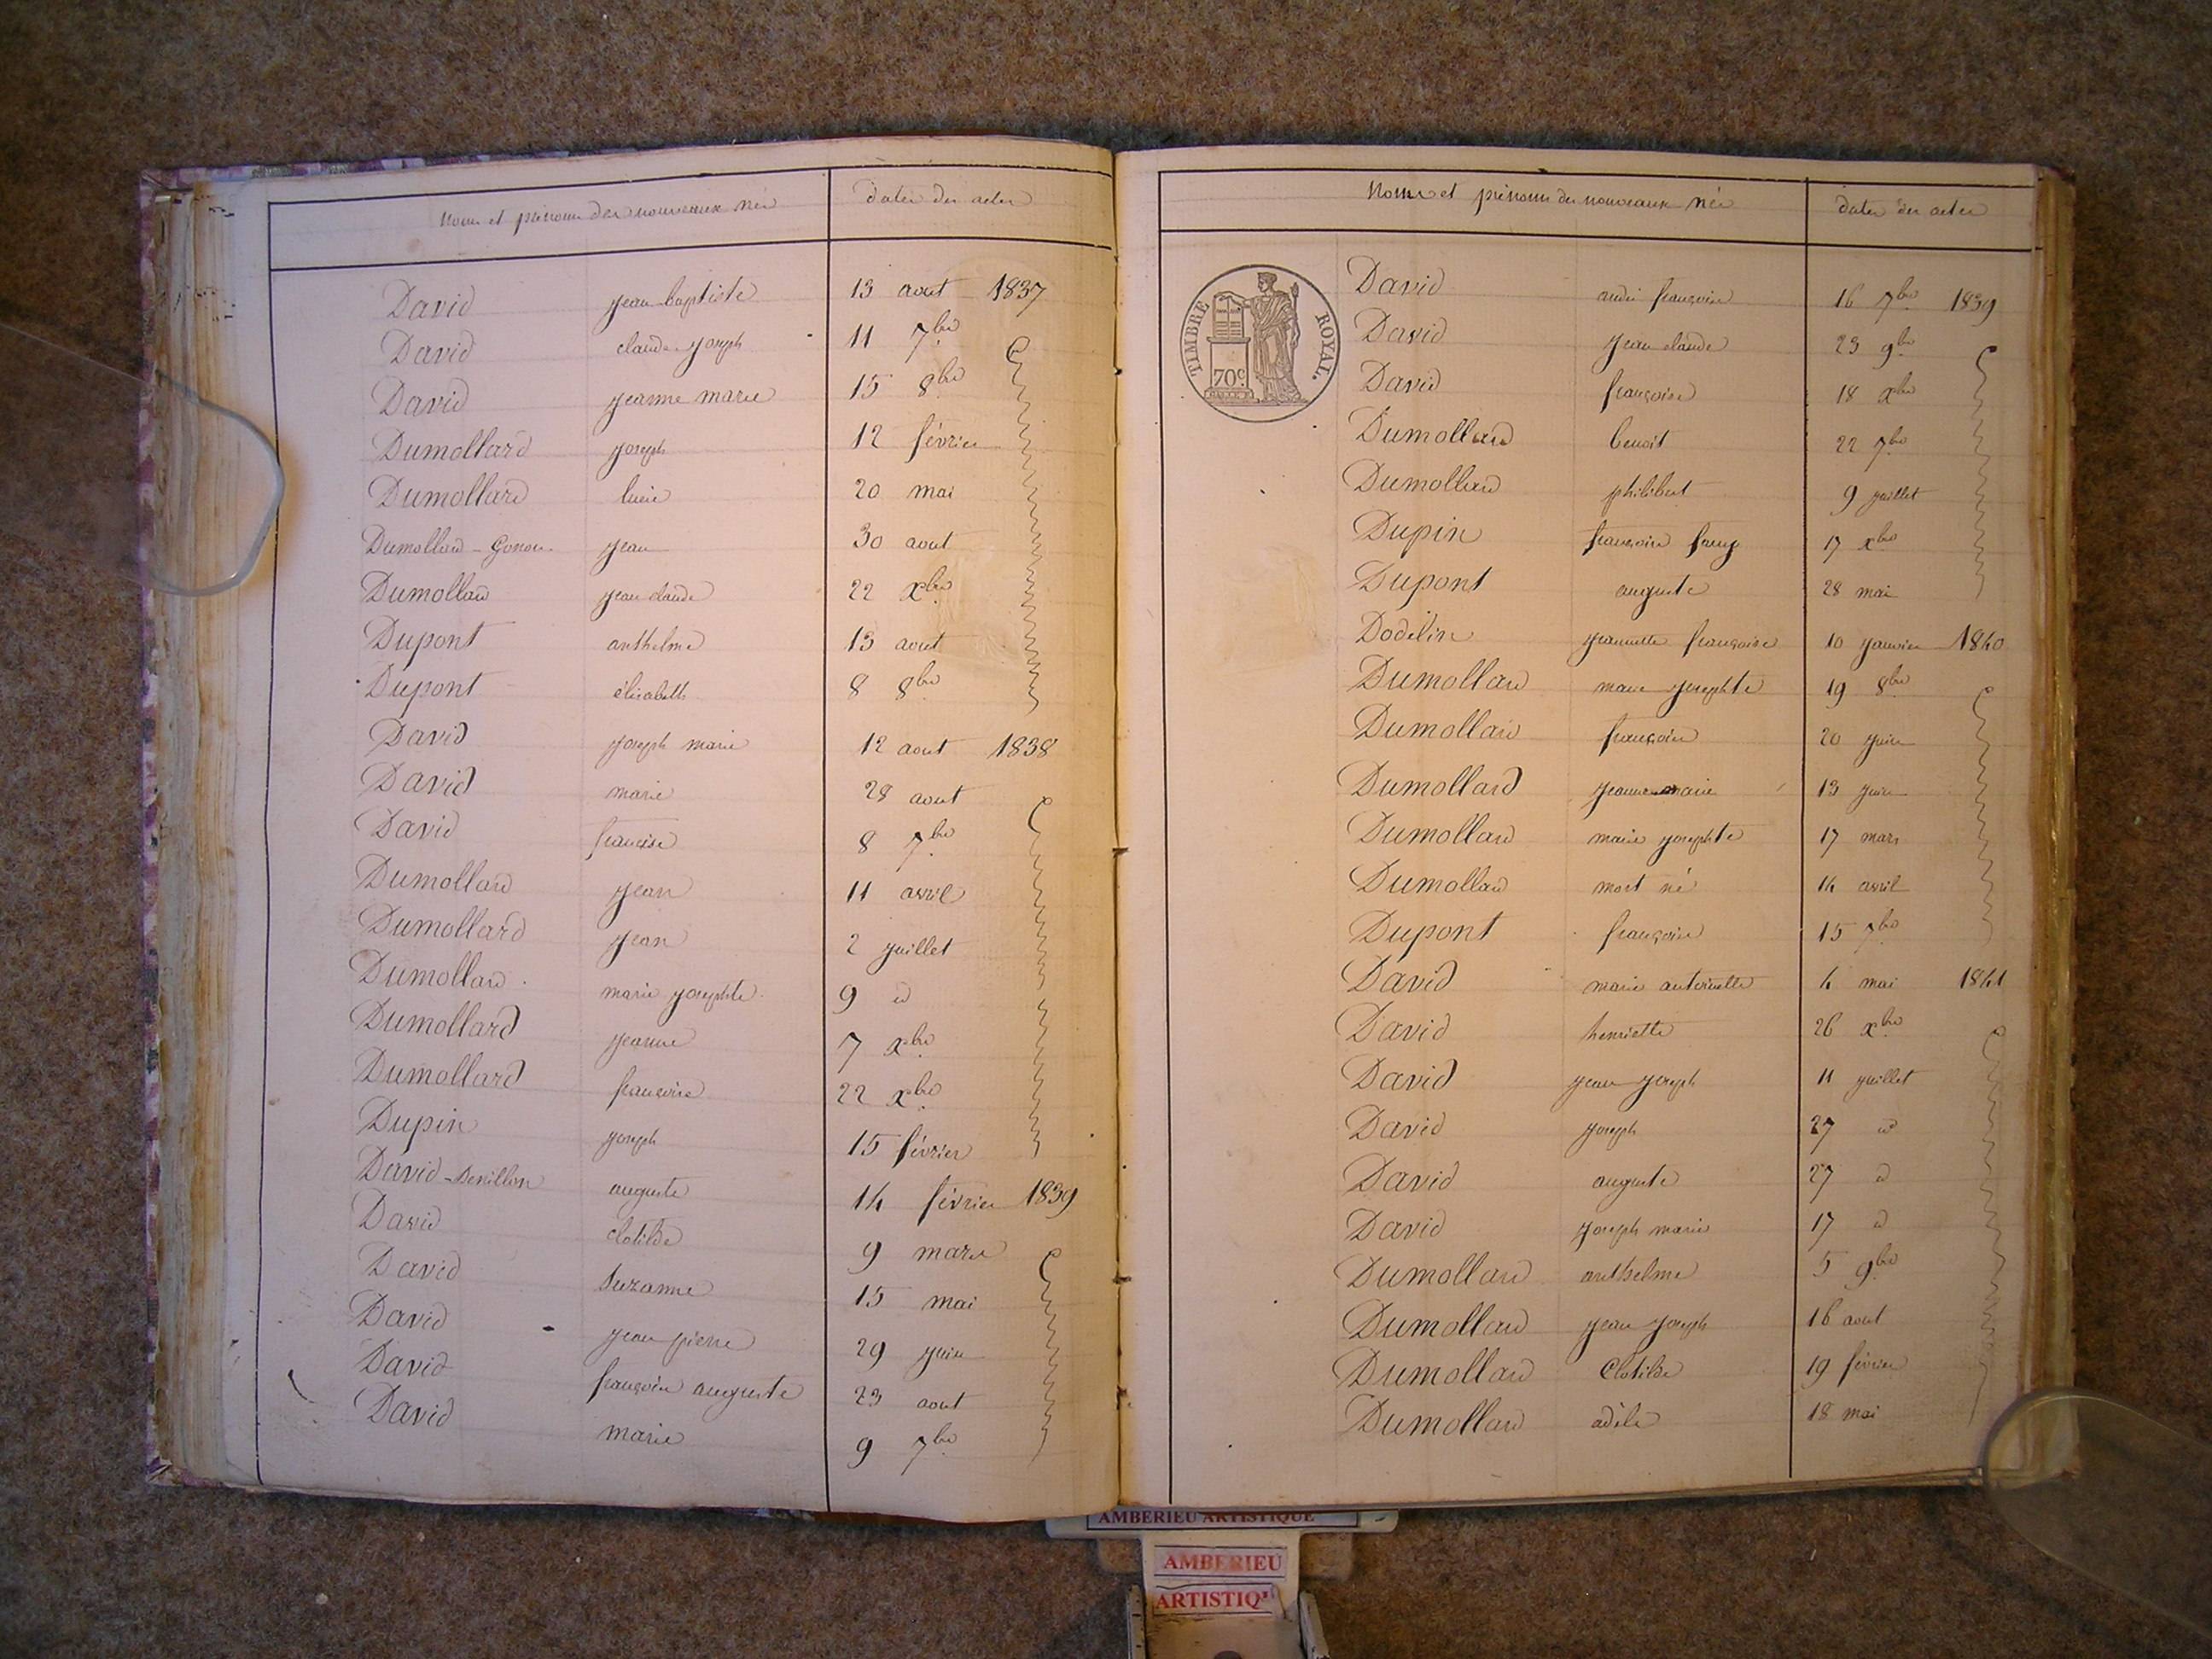 noms et prénoms des nouveaux nés dates des actes
David jean baptiste 13 aout 1837
David claude joseph 11 7bre
David jeanne marie 15 8bre
Dumollard joseph 12 février
Dumollard lucie 20 mai
Dumollard - Gonon jean 30 aout
Dumollard jean claude 22 xbre
Dupont anthelme 13 aout
Dupont élisabeth 8 8bre
David joseph marie 12 aout 1838
David marie 28 aout
David 8 7bre
Dumollard jean 11 avril
Dumollard jean 2 juillet
Dumollard marie josephte 9 id
Dumollard jeanne 7 xbre
Dumollard françoise 22 xbre
Dupin joseph 15 février
David - auguste 14 février 1839
David clotilde 9 mars
David Suzanne 15 mai
David jean pierre 29 juin
David françois auguste 23 aout
David marie 9 7bre
Noms et prénoms des nouveaux nés dates des actes
TIMBRE ROYAL.
70c.
David andré françois 16 7bre 1839
David jean claude 23 9bre
David françoise 18 xbre
Dumollard benoit 22 7bre
Dumollard philibert 9 juillet
Dupin 17 xbre
Dupont auguste 28 mai
Dodelin françoise 10 janvier 1840
Dumollard marie josephte 19 8bre
Dumollard 20 juin
Dumollard jeanne marie 13 juin
Dumollard marie josephte 17 mars
Dumollard mort né 14 avril
Dupont 15 7bre
David marie antoinette 4 mai 1841
David henriette 26 xbre
David jean joseph 11 juillet
David joseph 27 id
David auguste 27 id
David joseph marie 17 id
Dumollard anthelme 5 9bre
Dumollard jean joseph 16 aout
Dumollard Clotilde 19 février
Dumollard adèle 18 mai
AMBERIEU ARTISTIQUE
AMBERIEU
ARTISTIQ